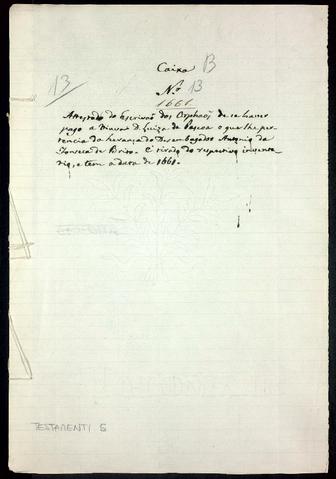 Caixa B
13
Nº 13
1661
Attestado do Escrivão dos Orphaõs de se haver
pago a Viuva D. Luiza de Pascoa o que lhe per-
tencia da herança do Desembargador Antonio da
Fonseca de Brito. É tirado do respectivo inventa-
rio, e tem a data de 1661.
TESTAMENTI 5